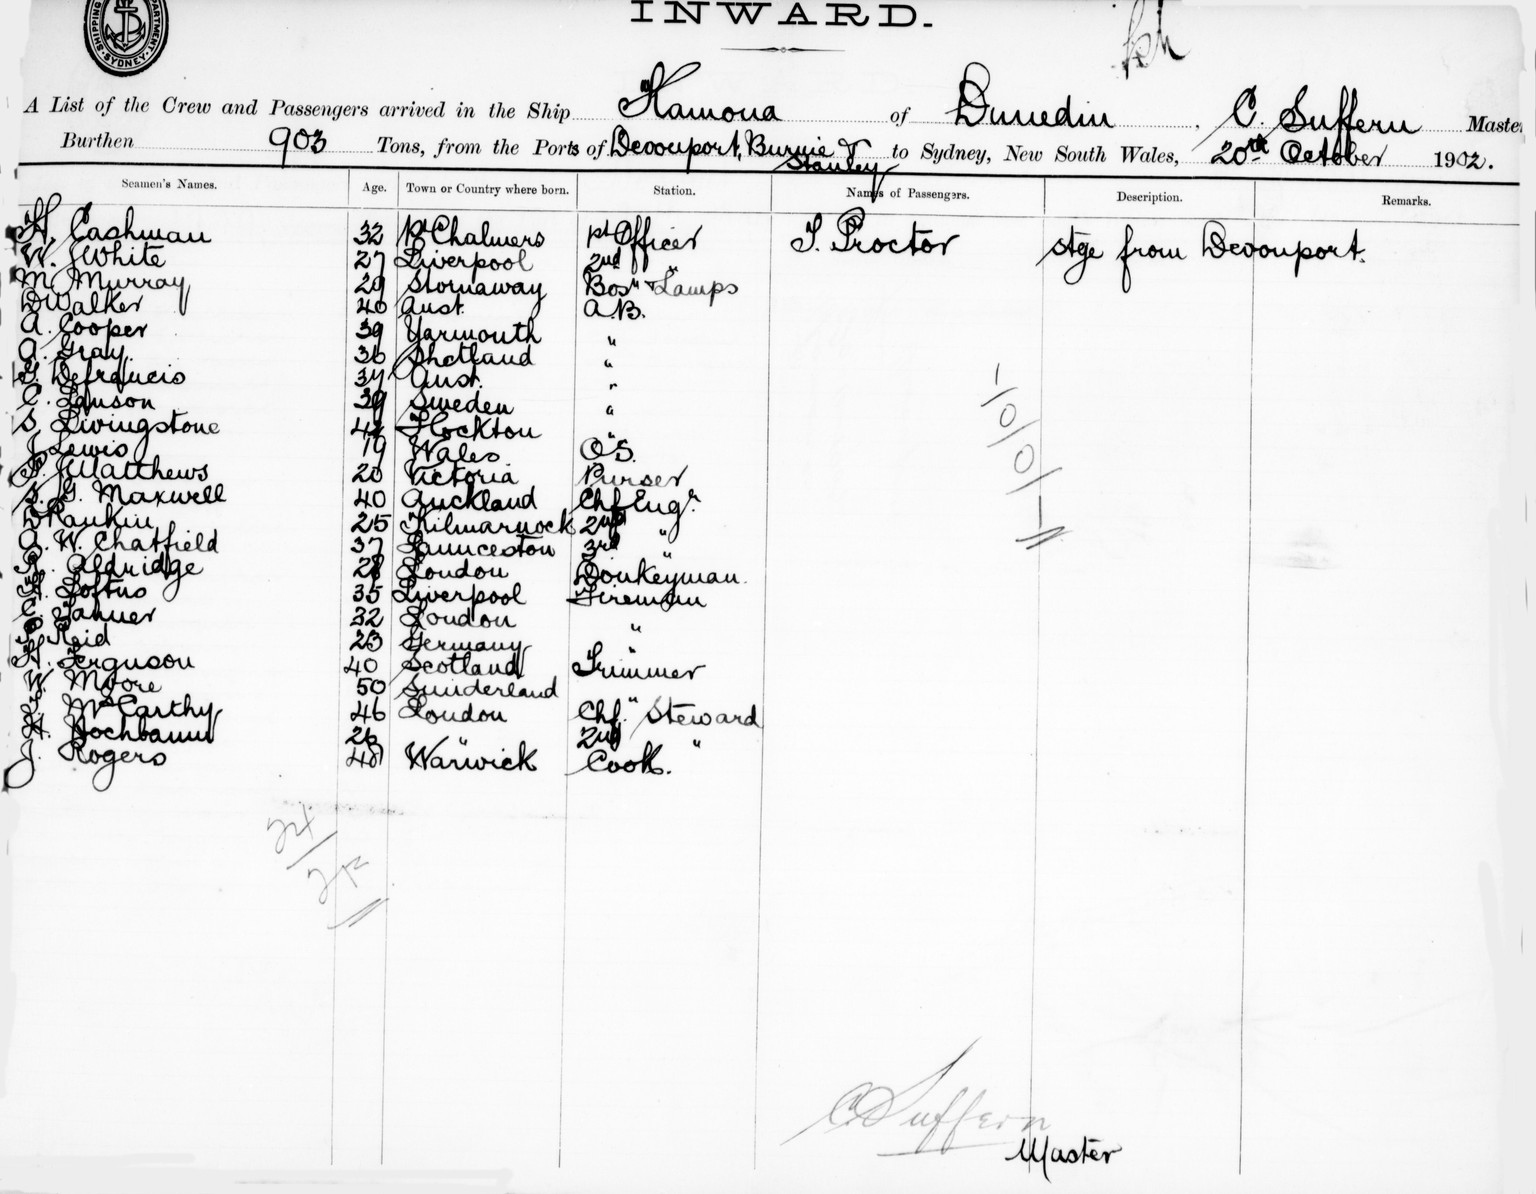 SHIPPING DEPARTMENT. SYDNEY
INWARD.
A List of the Crew and Passengers arrived in the Ship Kamona of Dunedin, C. Suffern Master
Burthen 903 Tons, from the Ports of Devonport, Burnie & Stanley to Sydney, New South Wales, 20th October 1902.
Seamen's Names. Age. Town or Country where born. Station. Names of Passengers. Description. Remarks.
H. Cashman 32 Pt Chalmers 1st Officer T. Proctor stge from Devonport.
W. White 27 Liverpool 2nd "
M. Murray 29 Stornaway Bosn & Lamps
D Walker 40 Aust. A.B.
A. Cooper 39 Yarmouth "
A. Gray. 36 Shetland "
Defrancis 37 Aust. "
C. Lawson 39 Sweden "
S. Livingstone 44 Stockton "
J. Lewis 19 Wales O.S.
Matthews 20 Victoria Purser
S. G. Maxwell 40 Auckland Chf Engr
D Rankin 25 Kilmarnock 2nd "
A. W. Chatfield 37 Launceston 3rd "
R. Aldridge 28 London Donkeyman.
H. Loftus 35 Liverpool Fireman
C. Tanner 32 London "
Reid 23 Germany "
H. Ferguson 40 Scotland Trimmer
W. Moore 50 Sunderland "
McCarthy 46 London Chf. Steward
H. Hochbaum 26 " 2nd "
J. Rogers 48 Warwick Cook.
C Suffern
Master